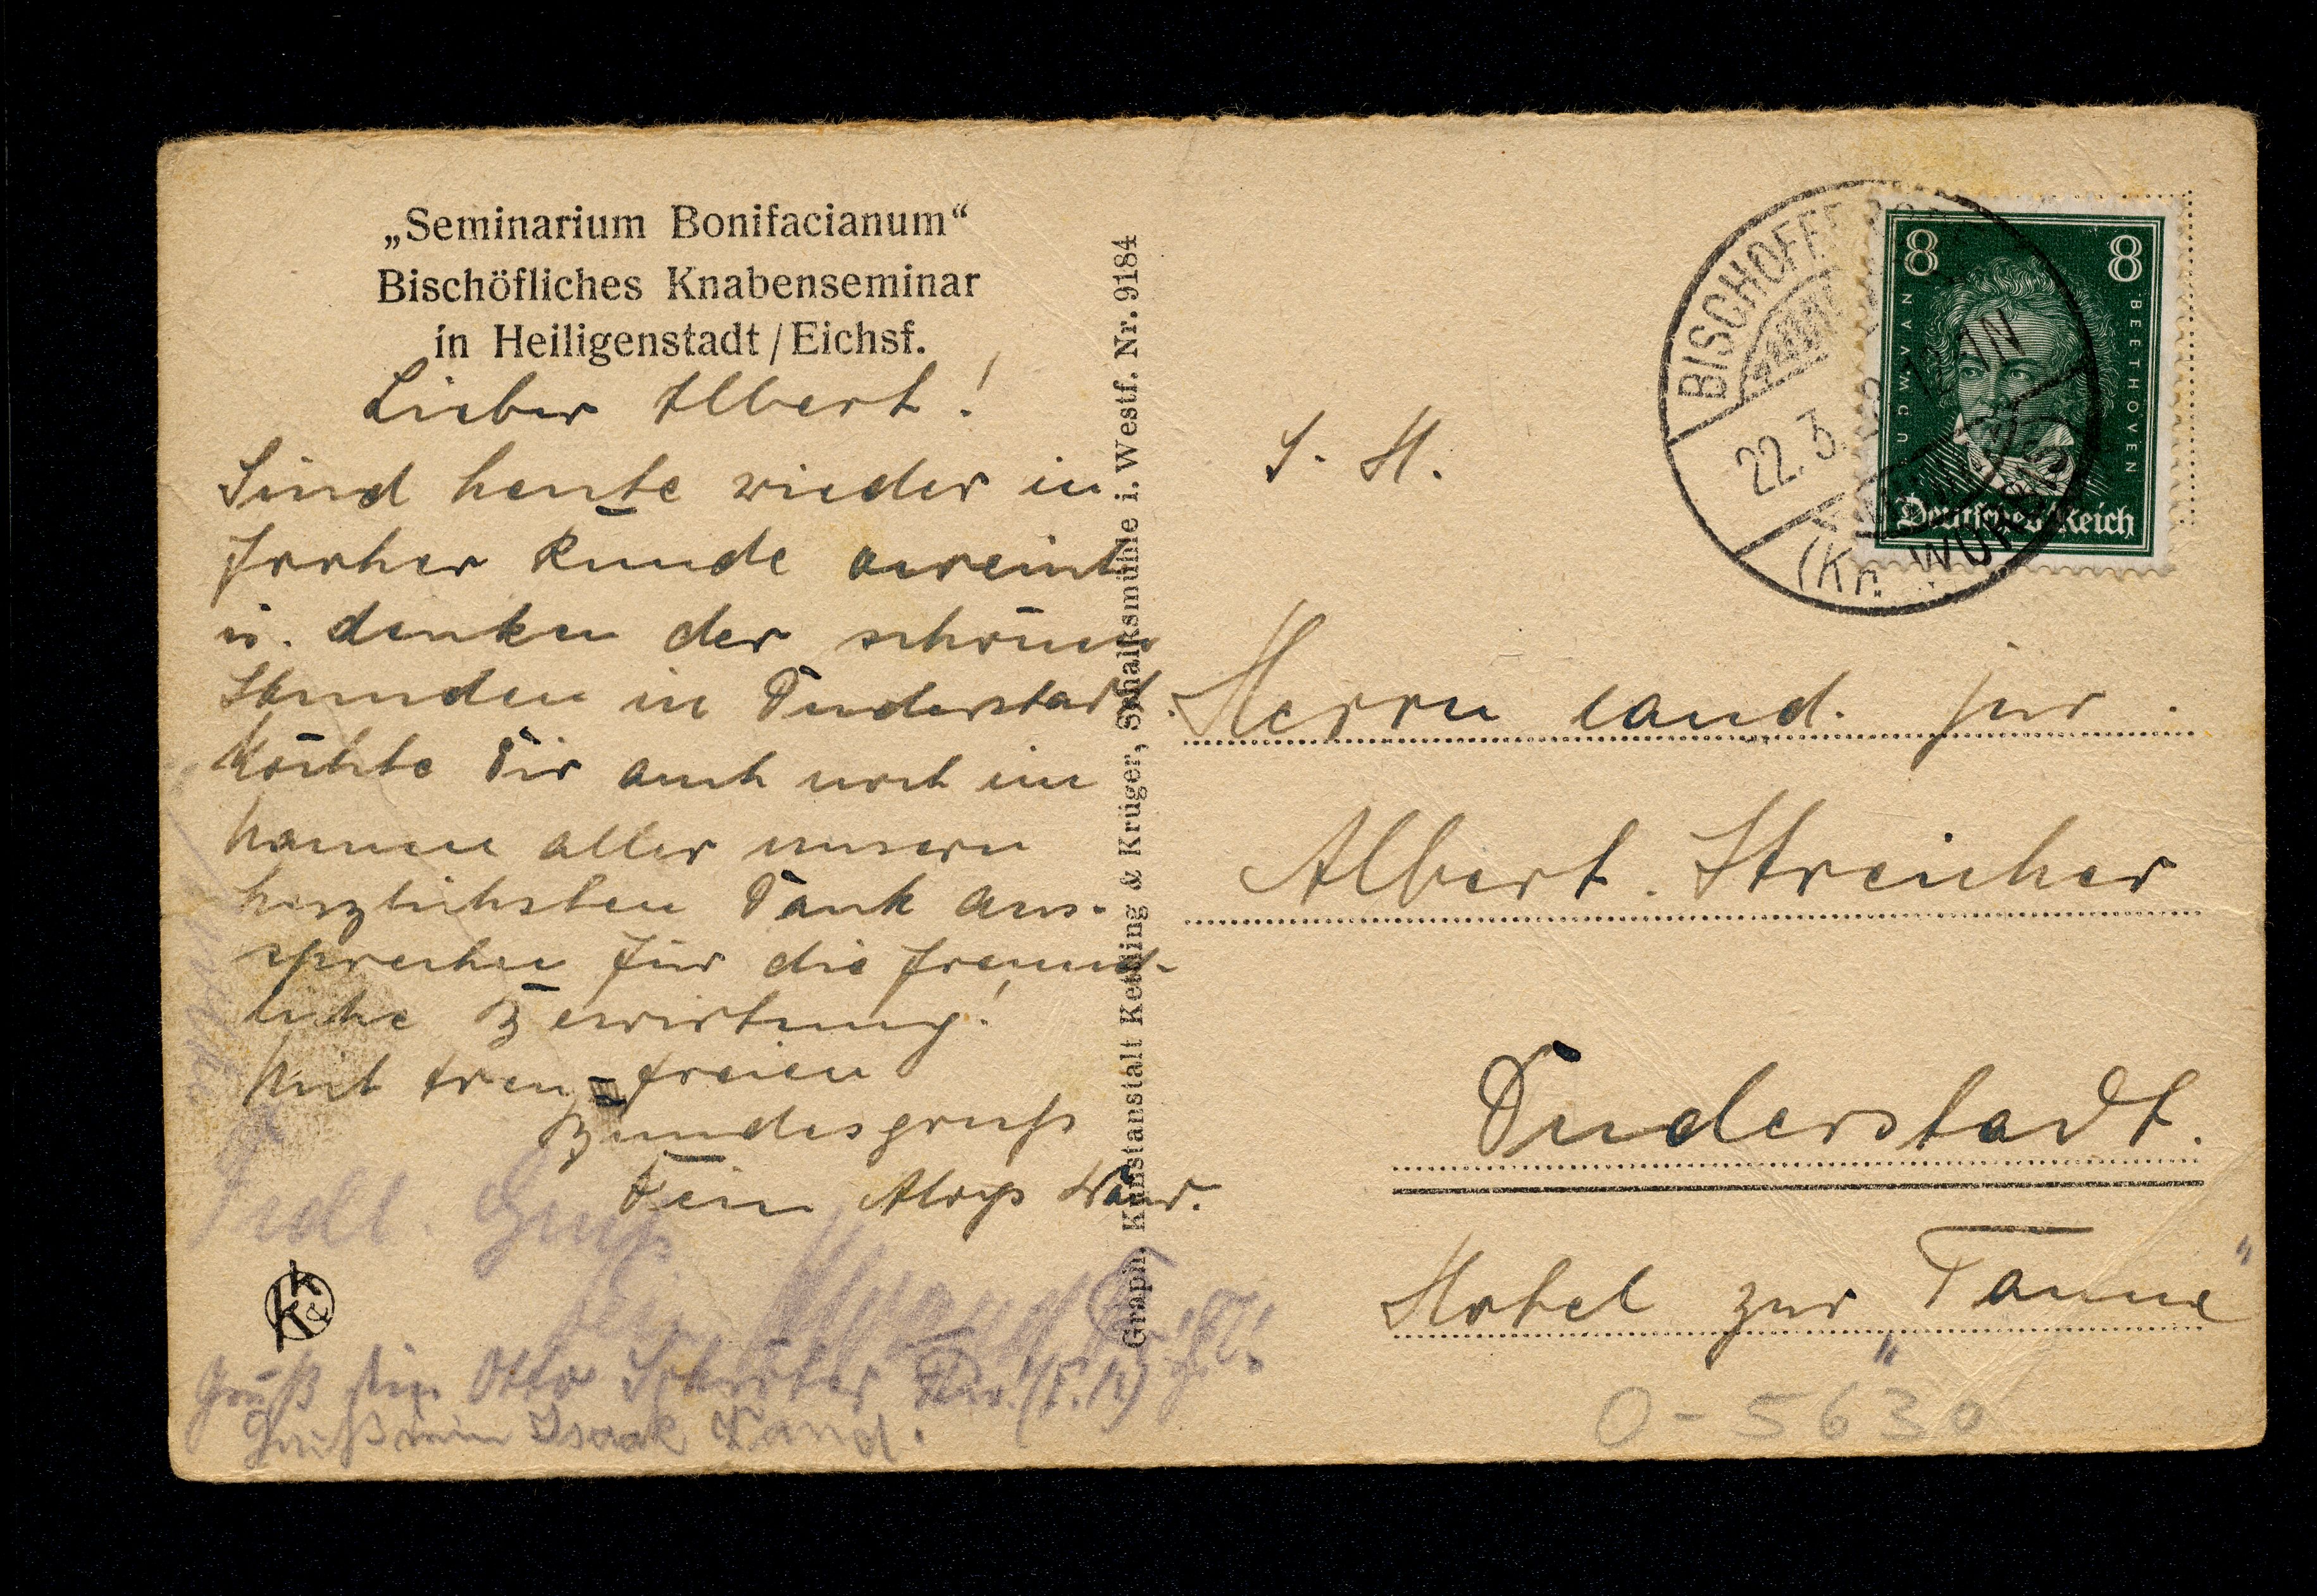 „Seminarium Bonifacianum“
Bischöfliches Knabenseminar
in Heiligenstadt / Eichsf.
Lieber Albert!
Sind heute wieder in
froher Runde vereint
u. denken der schönen
Stunden in Duderstadt.
Möchte Dir auch noch im
Namen aller unsern
herzlichsten Dank aus-
sprechen für die freund-
liche Bewirtung!
Mit treu-freien
Bundesgruß
Dein Aloys
Gruß
Gruß Otto
Gruß Isaak
k & k
Graph. Kunstanstalt Kettling & Krüger, Schalksmühle i. Westf. Nr. 9184
BISCHOFFERODE
22.3.
(Kr. WORBIS)
8 8
LUDW. VAN BEETHOVEN
Deutsches Reich
S. H.
Herrn cand. jur.
Albert Streicher
Duderstadt.
Hotel zur „Tanne“
O-5630